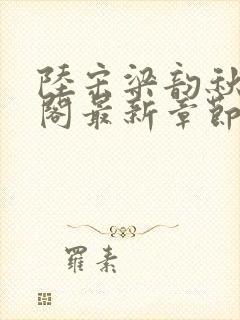 陸宗梁韵秋
閣最新章節
羅素